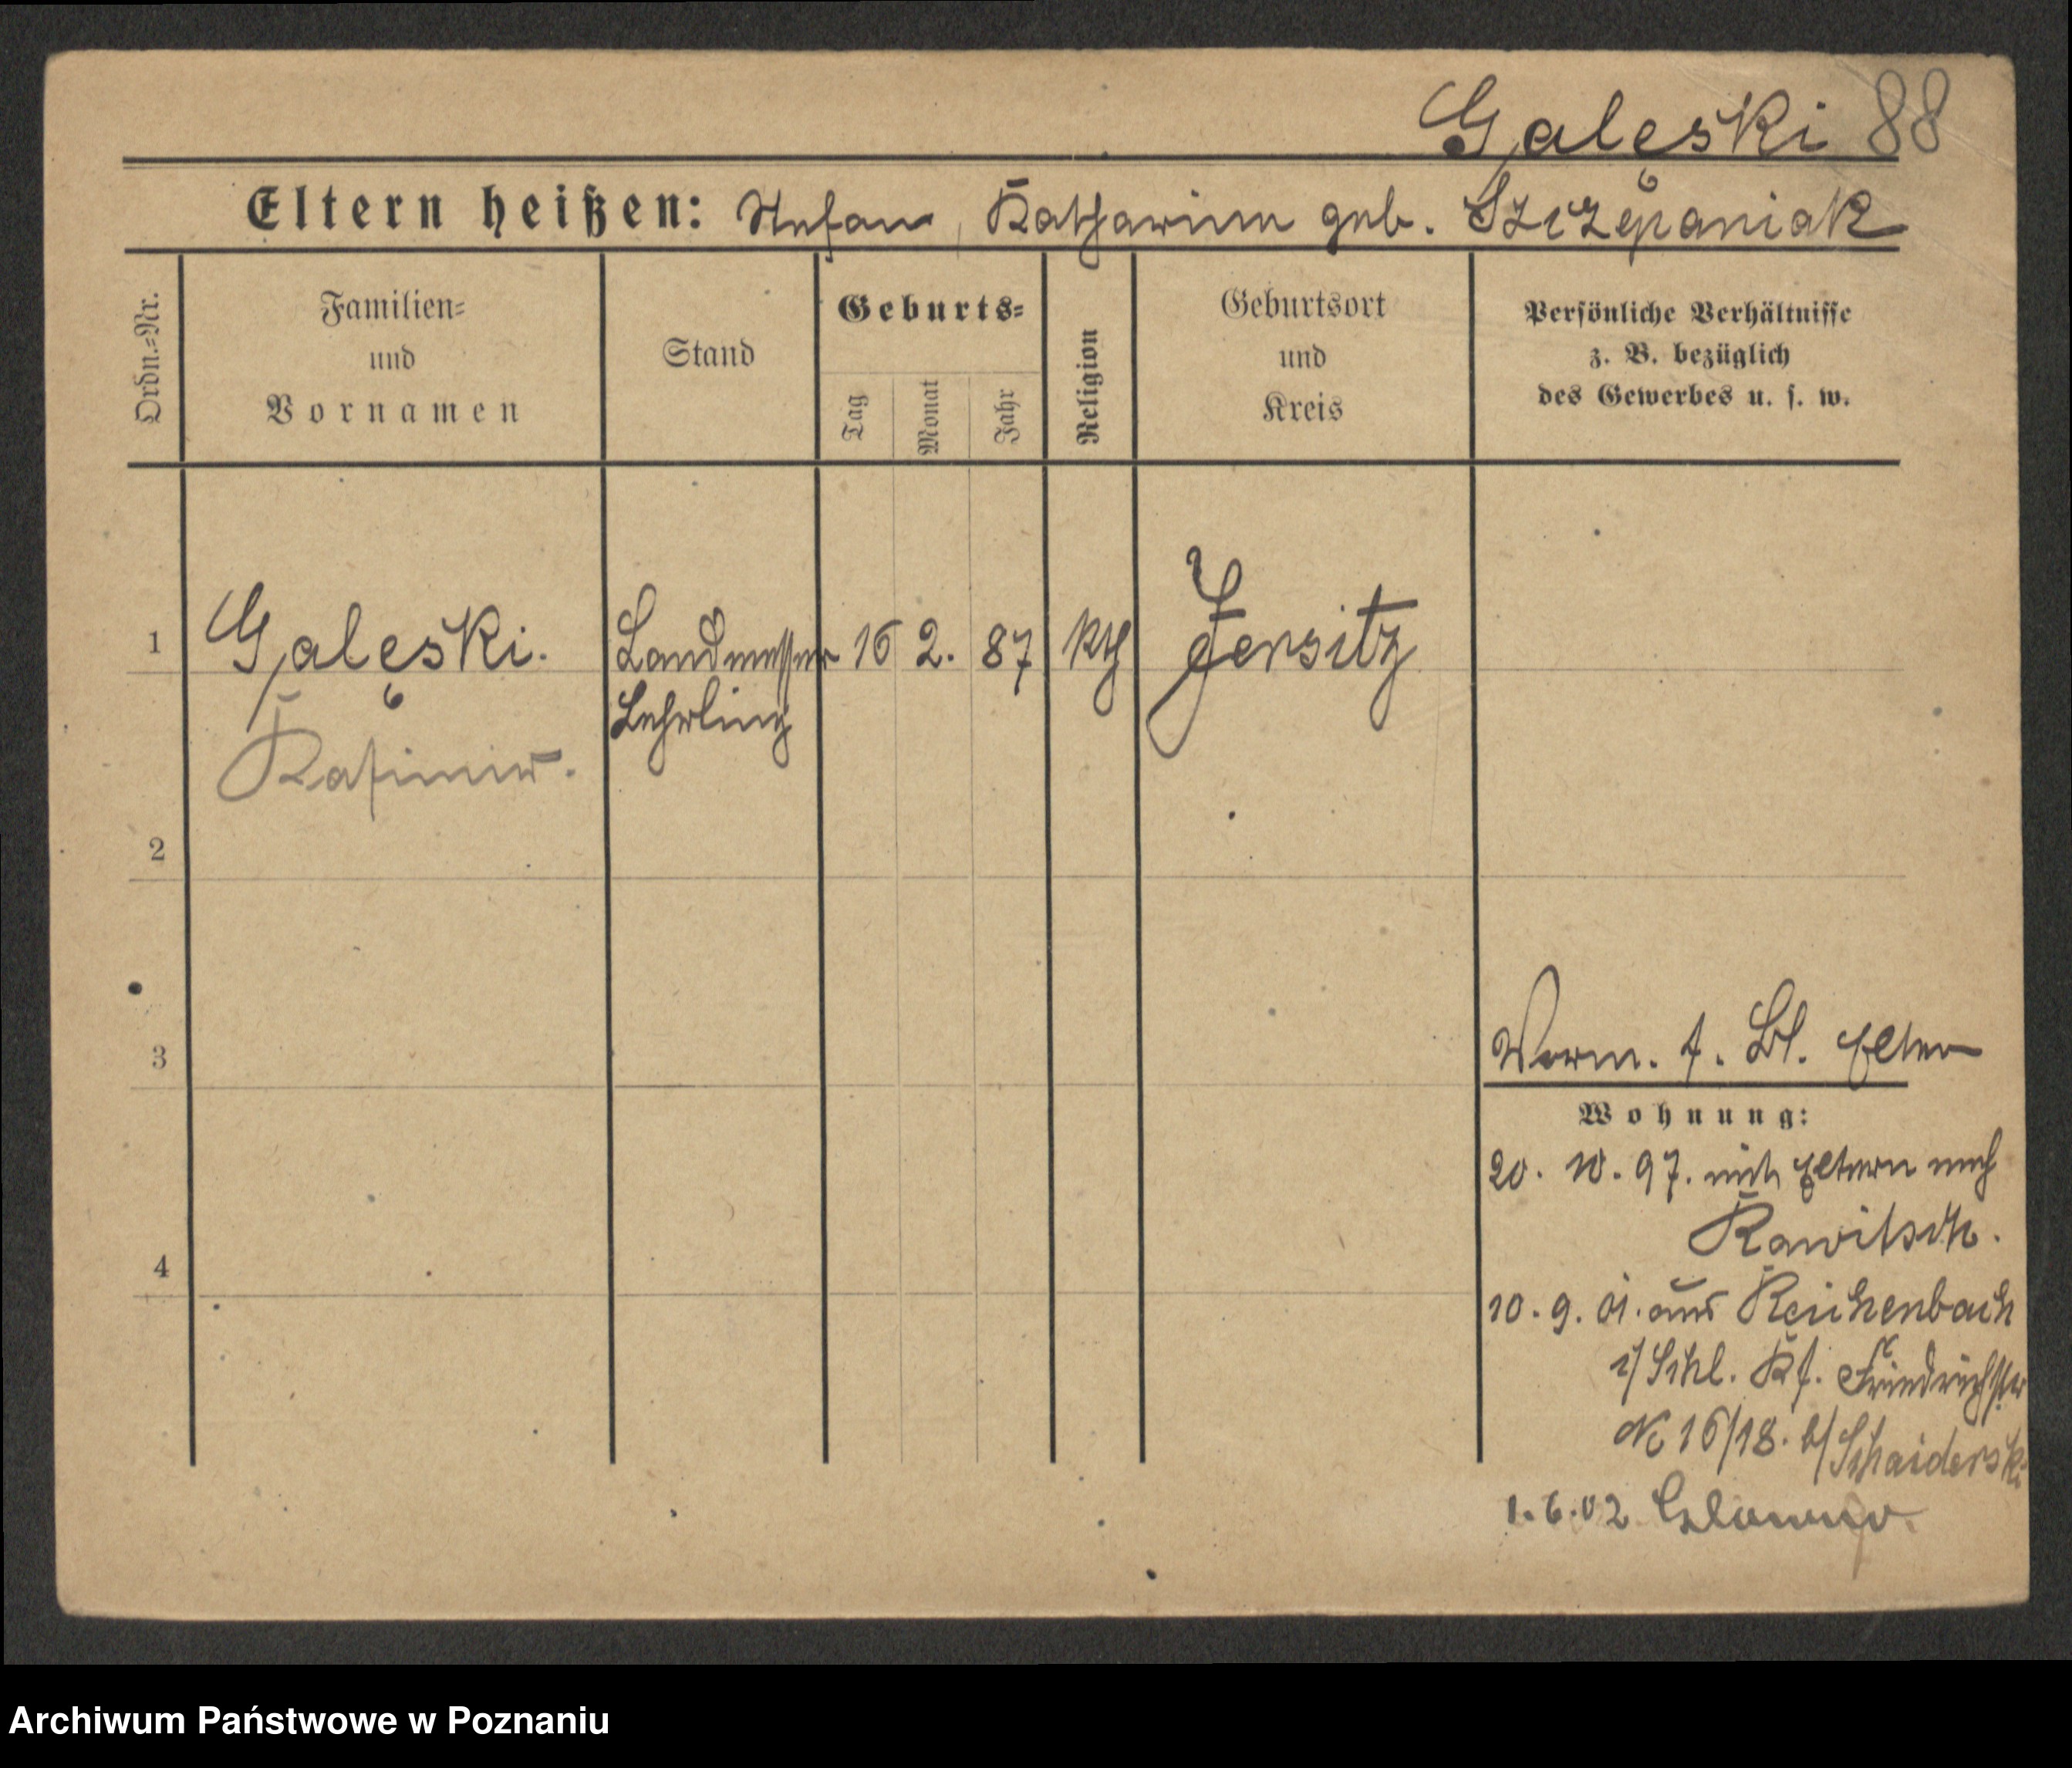 Galęski 88
Eltern heißen: Stefan, Katharina geb. Szczepaniak
Ordn.-Nr.
Familien-
und
Vornamen
Stand
Geburts-
Tag
Monat
Jahr
Religion
Geburtsort
und
Kreis
Persönliche Verhältnisse
z. B. bezüglich
des Gewerbes u. s. w.
1 Galęski. Landmesser 16 2. 87 kth Jersitz
Lehrling
Kasimir.
2
3
Vorm. s. Bl. Eltern
Wohnung:
20. 10. 97. mit Eltern nach
Rawitsch.
4
10. 9. 01. aus Reichenbach
i/Schl. Kf. Friedrichstr
№ 16/18. b/
1.6.02
Archiwum Państwowe w Poznaniu